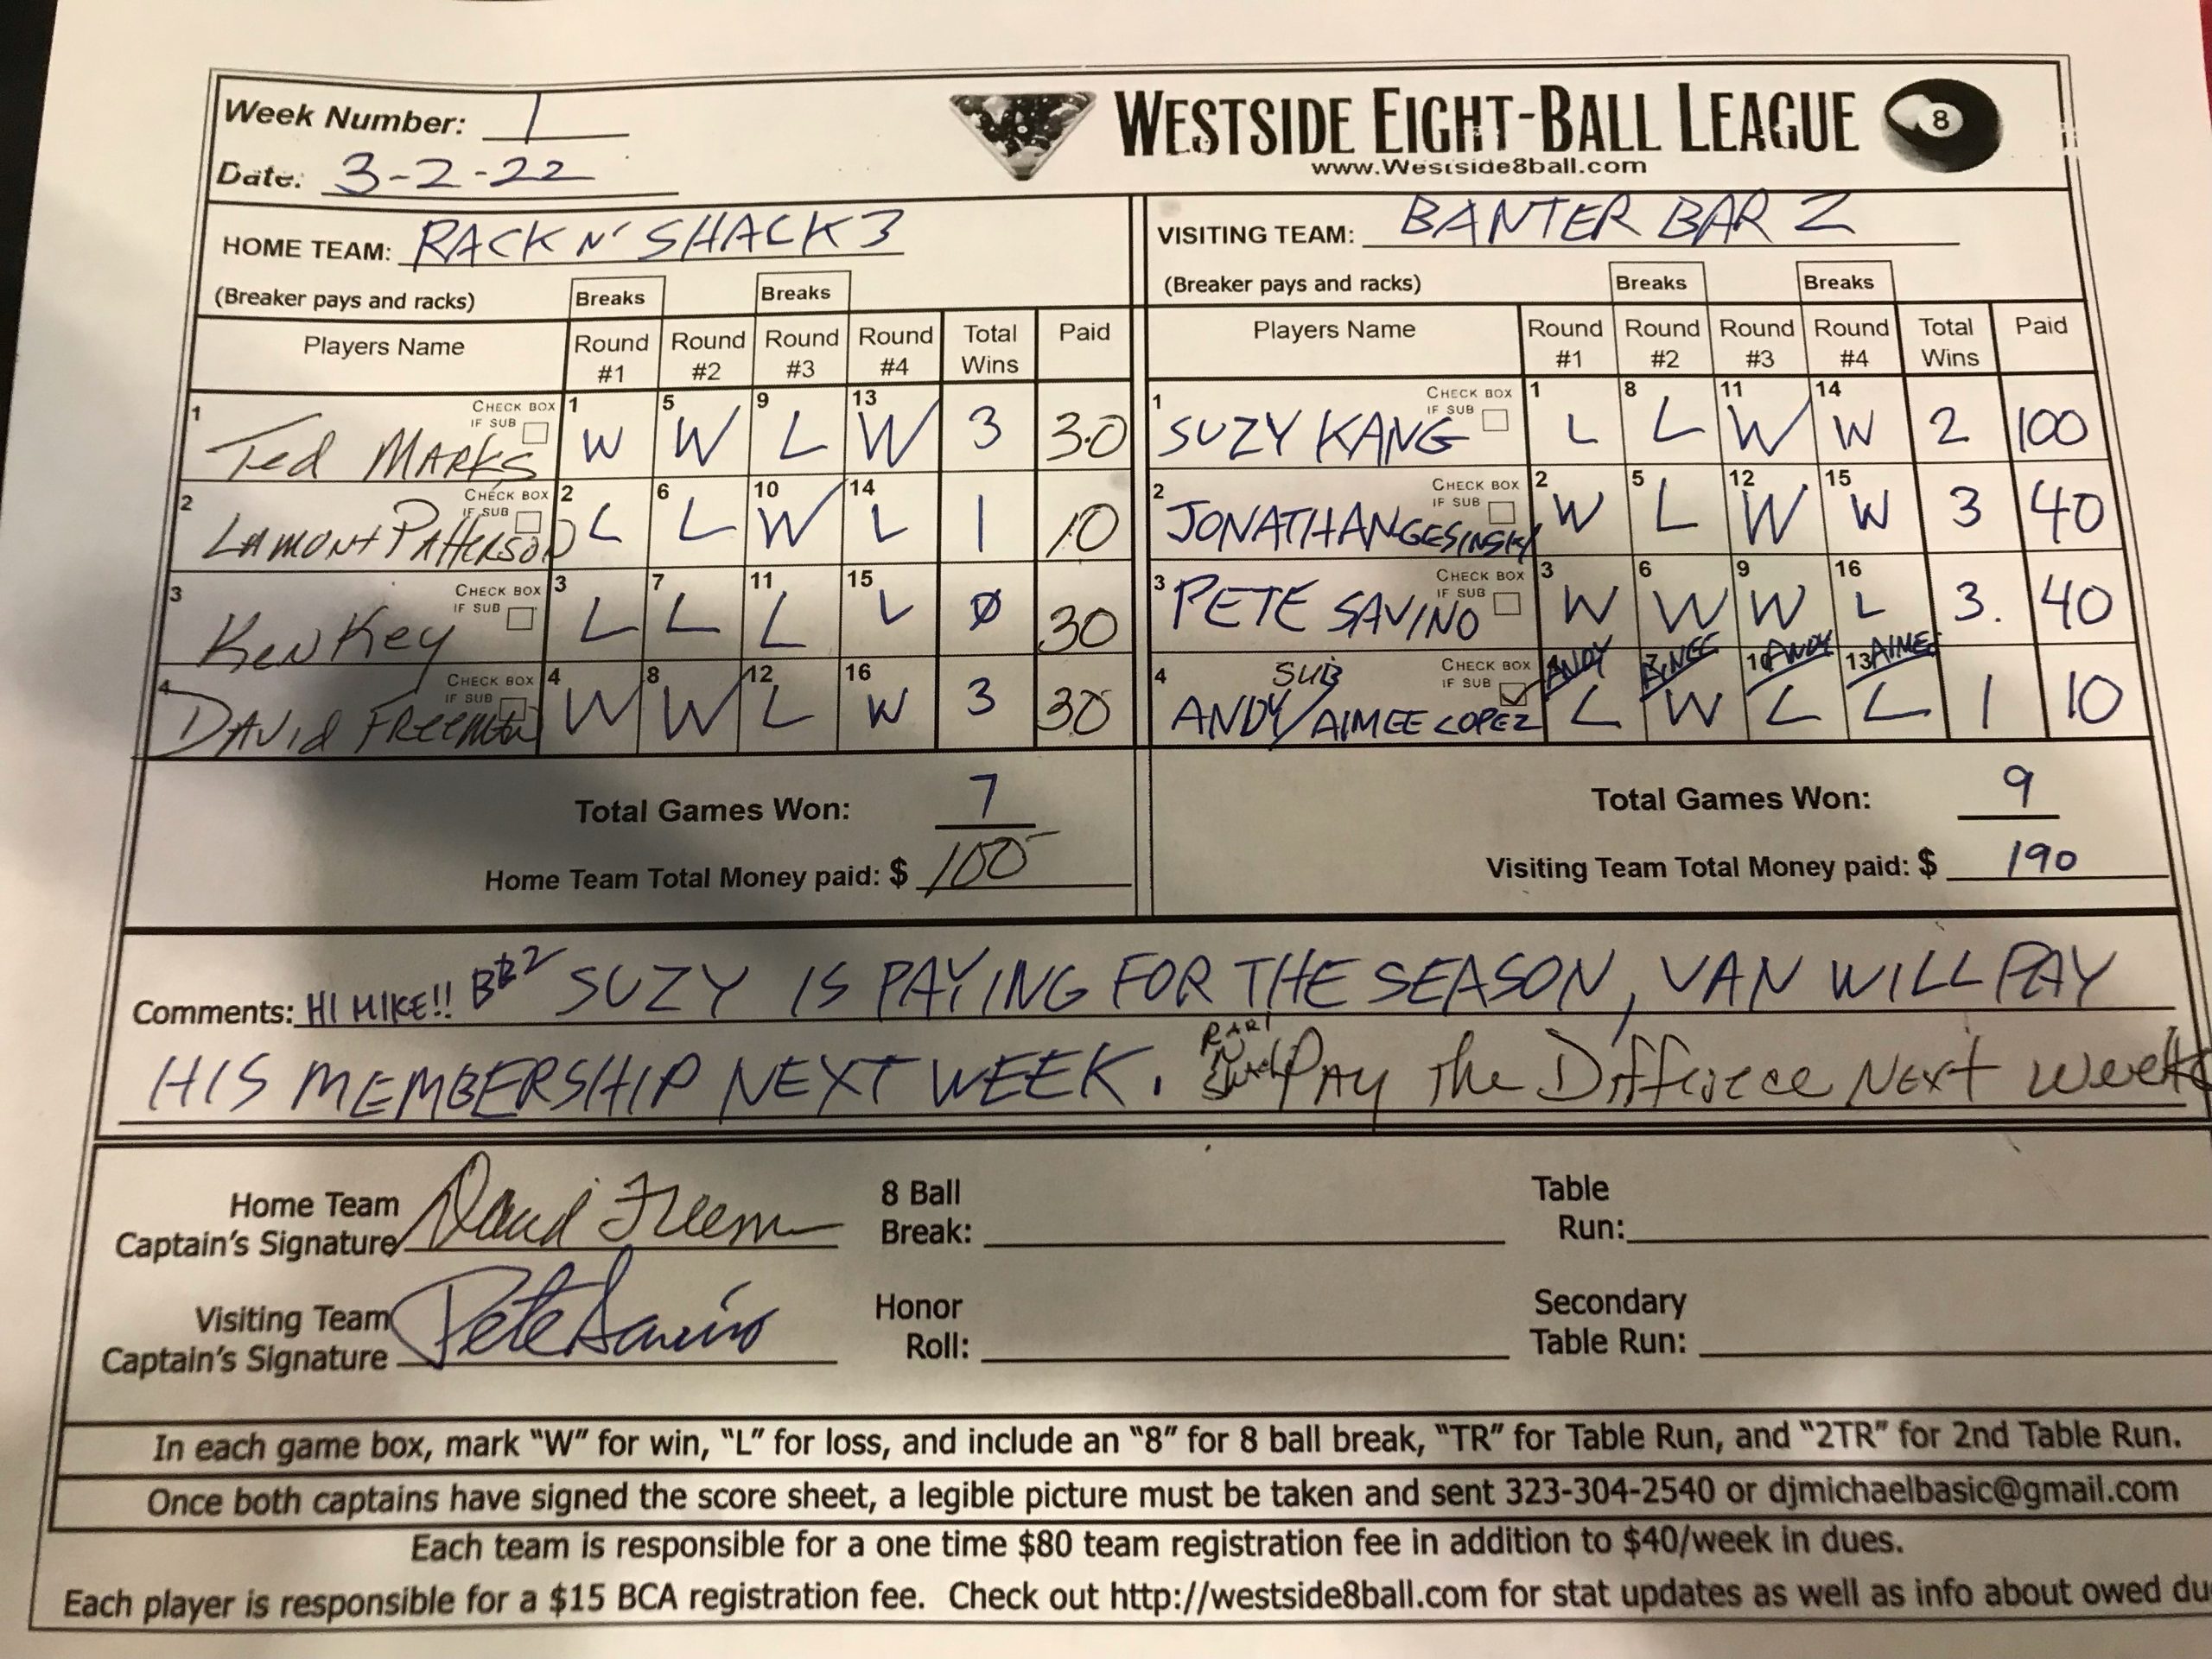 Week Number: 1
WESTSIDE EIGHT-BALL LEAGUE 8
Date: 3-2-22
www.Westside8ball.com
HOME TEAM: RACK N' SHACK 3
VISITING TEAM: BANTER BAR 2
(Breaker pays and racks) Breaks Breaks
(Breaker pays and racks) Breaks Breaks
Players Name Round #1 Round #2 Round #3 Round #4 Total Wins Paid
Players Name Round #1 Round #2 Round #3 Round #4 Total Wins Paid
1 Ted MARKS CHECK BOX IF SUB 1 W 5 W 9 L 13 W 3 30
1 SUZY KANG CHECK BOX IF SUB 1 L 8 L 11 W 14 W 2 100
2 LAMONT PATTERSON CHECK BOX IF SUB 2 L 6 L 10 W 14 L 1 10
2 JONATHAN GESINSKY CHECK BOX IF SUB 2 W 5 L 12 W 15 W 3 40
3 Ken Key CHECK BOX IF SUB 3 L 7 L 11 L 15 L Ø 30
3 PETE SAVINO CHECK BOX IF SUB 3 W 6 W 9 W 16 L 3. 40
4 DAVID FREEMAN CHECK BOX IF SUB 4 W 8 W 12 L 16 W 3 30
4 SUB ANDY/AIMEE LOPEZ CHECK BOX IF SUB 4 ANDY L 7 AIMEE W 10 ANDY L 13 AIMEE L 1 10
Total Games Won: 7
Total Games Won: 9
Home Team Total Money paid: $ 100
Visiting Team Total Money paid: $ 190
Comments: HI MIKE!! BB2 SUZY IS PAYING FOR THE SEASON, VAN WILL PAY
HIS MEMBERSHIP NEXT WEEK. PAY The Differece Next week
Home Team Captain's Signature David Freeman
8 Ball Break:
Table Run:
Visiting Team Captain's Signature Pete Savino
Honor Roll:
Secondary Table Run:
In each game box, mark "W" for win, "L" for loss, and include an "8" for 8 ball break, "TR" for Table Run, and "2TR" for 2nd Table Run.
Once both captains have signed the score sheet, a legible picture must be taken and sent 323-304-2540 or djmichaelbasic@gmail.com
Each team is responsible for a one time $80 team registration fee in addition to $40/week in dues.
Each player is responsible for a $15 BCA registration fee. Check out http://westside8ball.com for stat updates as well as info about owed du